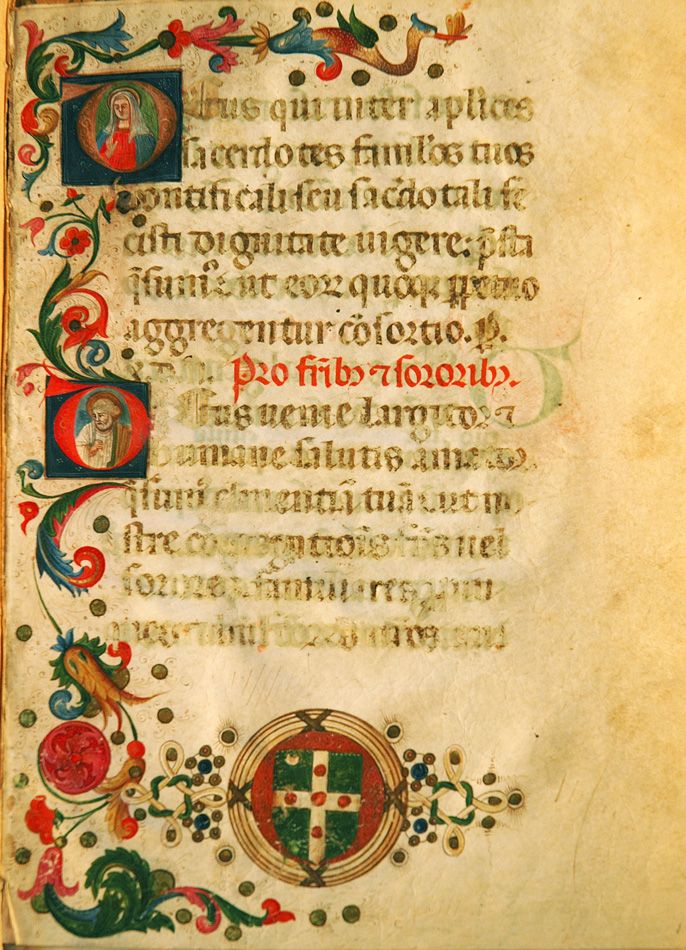 Deus qui inter aplicos
sacerdotes famulos tuos
pontificali seu sacdotali fe
cisti dignitate uigere: psta
qsum⁹ ut eoꝝ quoqꝫ ꝑpetuo
aggregentur cōsortio. P.
Pro frībꝫ ⁊ sororibꝫ.
Deus uenie largitor ⁊
humane salutis amator
qsum⁹ clementiā tuā ut no
stre congregationis frēs uel
sorores familiares